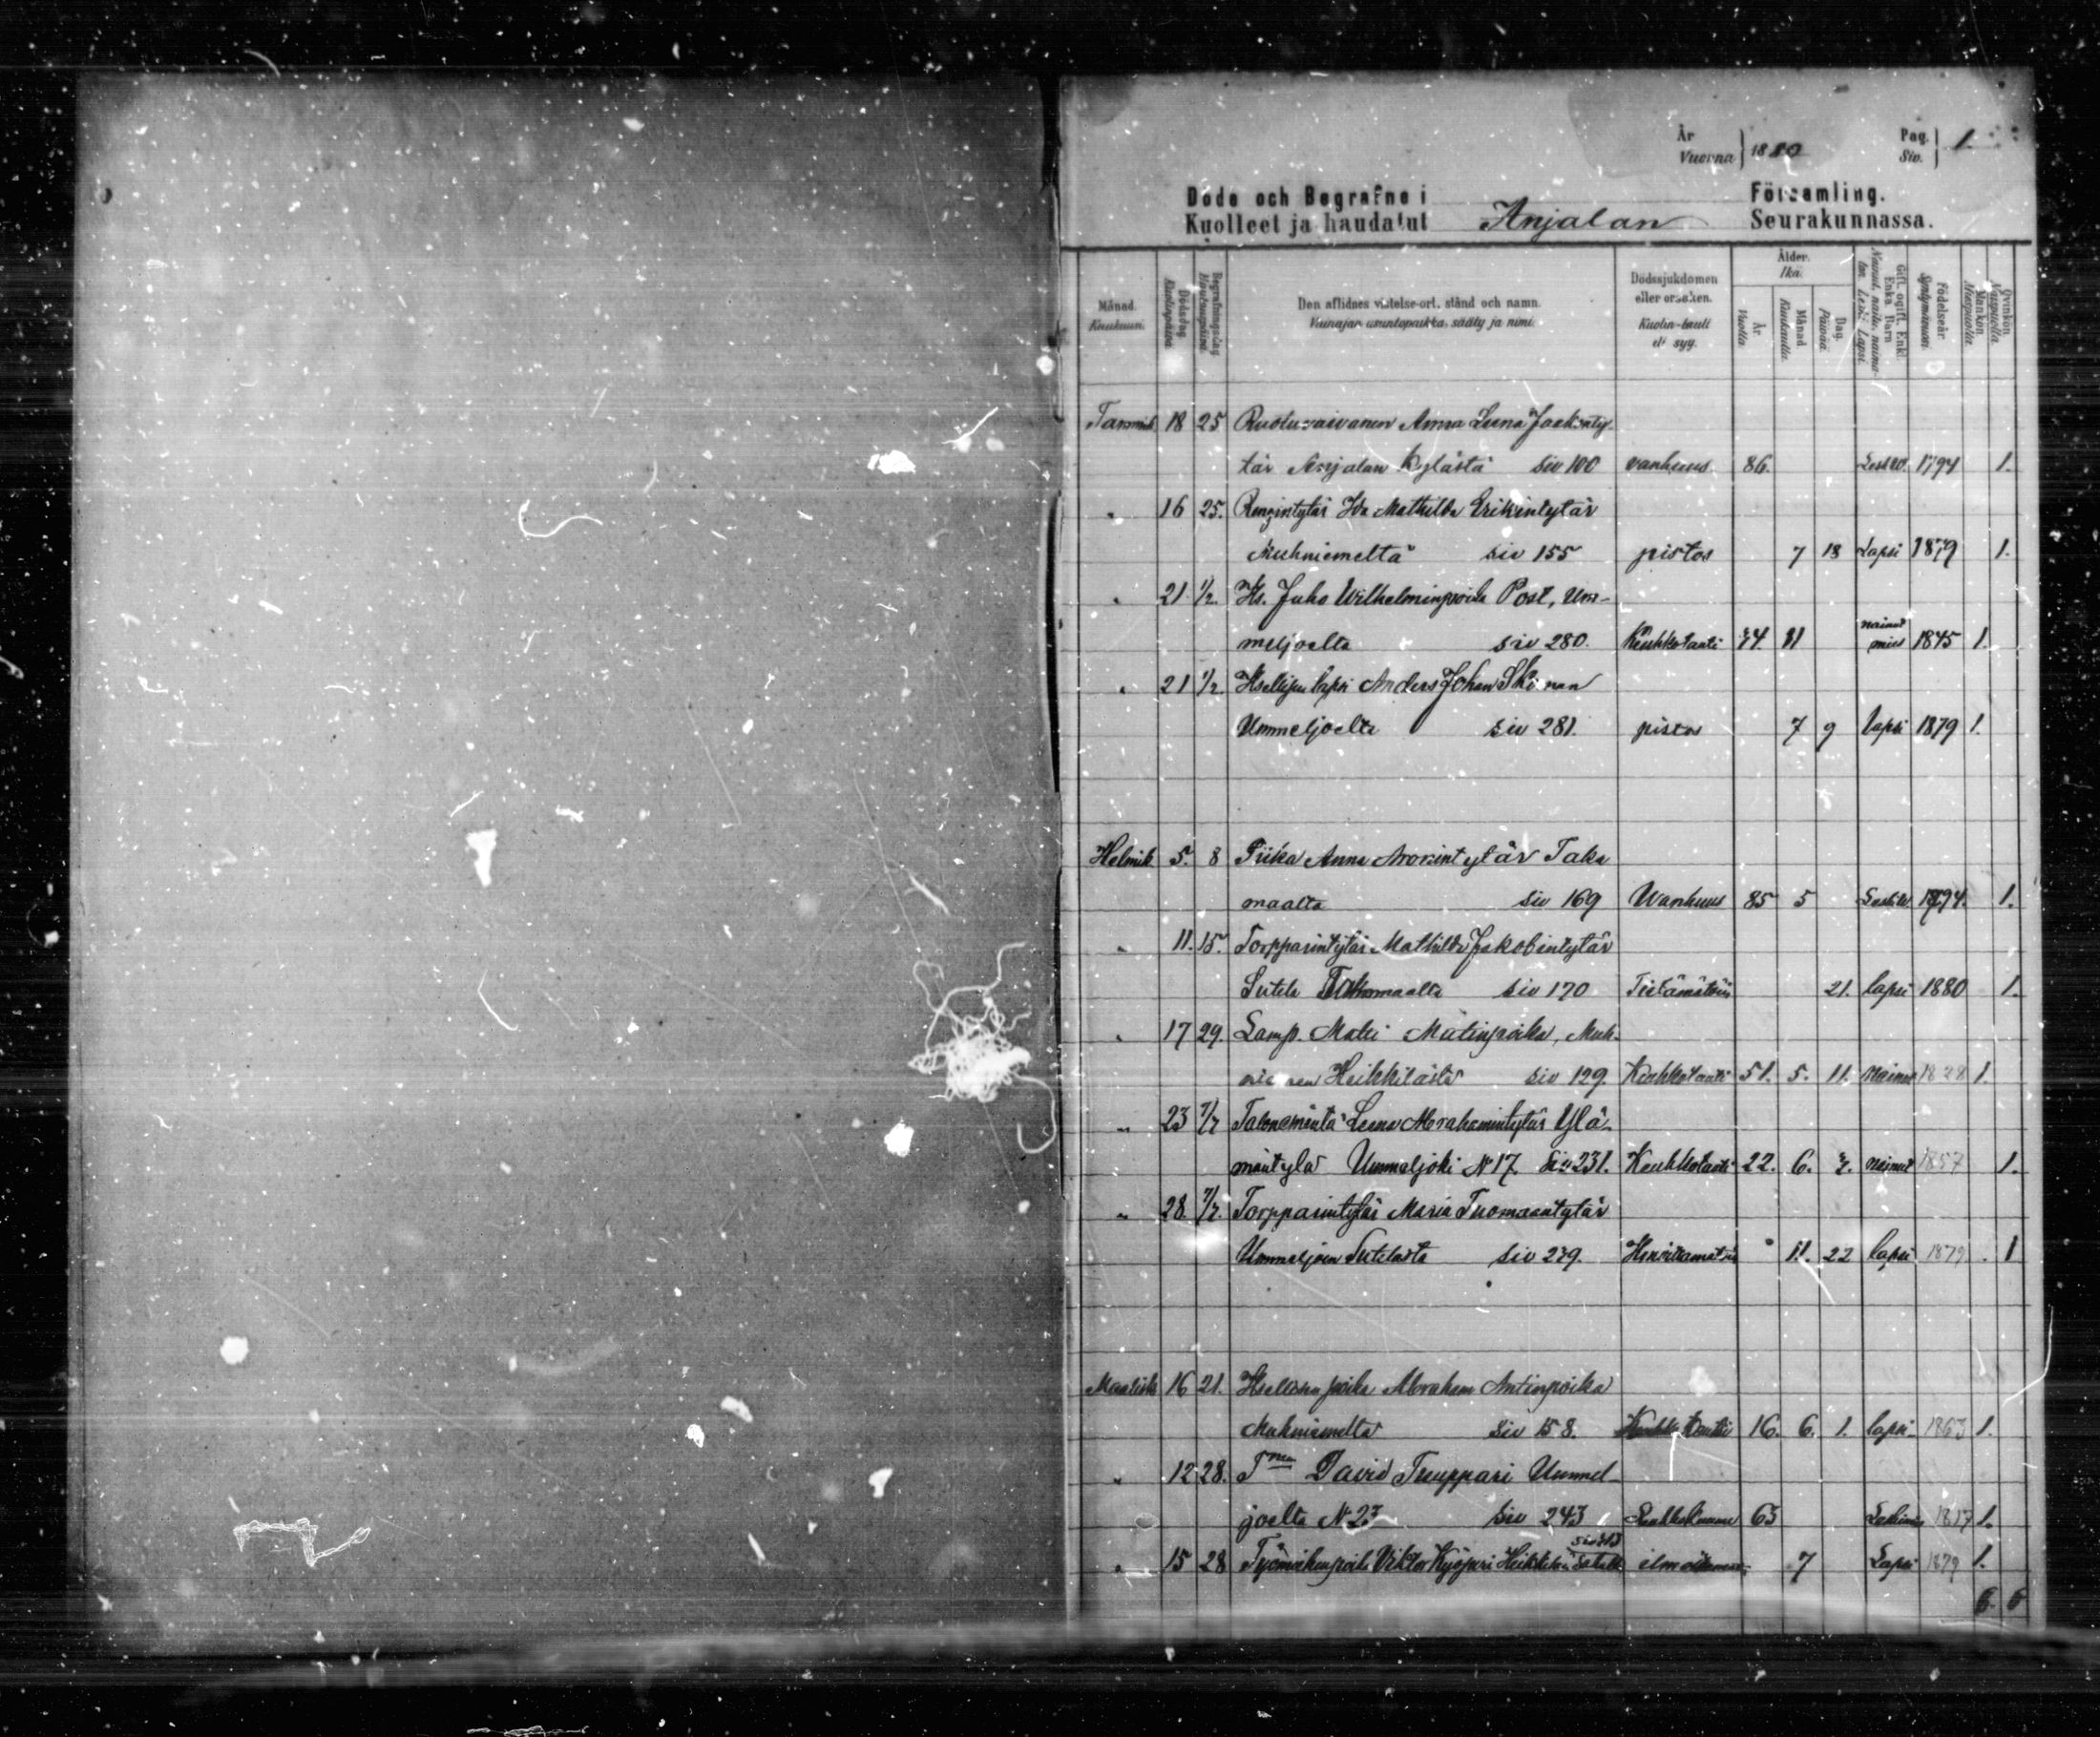 År Vuonna } 1880 Pag. Siv. } 1.
Döde och Begrafne i Församling.
Kuolleet ja haudatut Anjalan Seurakunnassa.
Månad. Kuukausi. Dödsdag. Kuolinpäivä. Begrafningsdag. Hautauspäivä. Den aflidnes vistelse-ort, stånd och namn. Vainajan asuntopaikka, sääty ja nimi. Dödssjukdomen eller orsaken. Kuolin-tauti eli syy. Ålder. Ikä. År. Vuotta. Månad. Kuukautta. Dag. Päivää. Gift, ogift, Enkl. Enka, Barn. Nainut, naitu, naimaton. Leski. Lapsi. Födelseår. Syntymävuosi. Mankön. Miespuolia. Qvinkön. Naispuolia.
Tammik. 18 25 Ruotuvaivanen Anna Leena Jaakonty-
tär Anjalan Kylästä siv 100 vanhuus 86. Leski 1794 1.
" 16 25. Rengintytär Ida Mathilda Erikintytär
Muhniemeltä siv 155 pistos 7 18 Lapsi 1879 1.
" 21 1/2. Hs. Juho Wilhelminpoika Post, Um-
meljoelta siv 280. Keuhkotauti 34. 11 nainut mies 1845 1.
" 21 1/2. Itsellisen lapsi Anders Johan
Ummeljoelta siv 281. pistos 7 9 lapsi 1879 1.
Helmik 5. 8 Piika Anna Taka
maalta siv 169 Wanhuus 85 5 1794. 1.
" 11. 15. Torpparintytär Mathilda Jakobintytär
Sutela Takamaalta siv 170 Tietämätöin 21. lapsi 1880 1.
" 17 29. Lamp. Matti Matinpoika, Muh-
niemen Heikkilästä siv 129. Keuhkotauti 51. 5. 11. nainut 1828 1.
" 23 7/3 Talonemäntä Leena Abrahamintytär Ylä-
mäntylä Ummeljoki No 17. Siv 231. Keuhkotauti 22. 6. nainut 1857 1.
" 28. 7/3. Torpparintytär Maria Tuomaantytär
Ummeljoen Sutelasta siv 239. 11. 22 lapsi 1879 1
Maalisk 16 21. Itsellisen poika Abraham Antinpoika
Muhniemeltä siv 158. Keuhkotauti 16. 6. 1. lapsi 1863 1.
" 12 28. Tnen David Truuppari Ummel-
joelta No 23 siv 243 63 1817 1.
" 15 28 Työmiehenpoika Viktor Heikkilän 7 Lapsi 1879 1.
6. 6